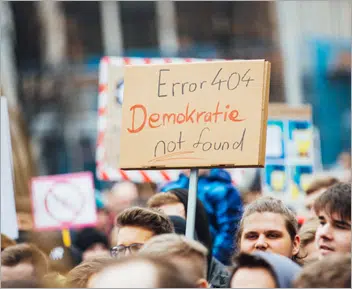 Error 404
Demokratie
not found